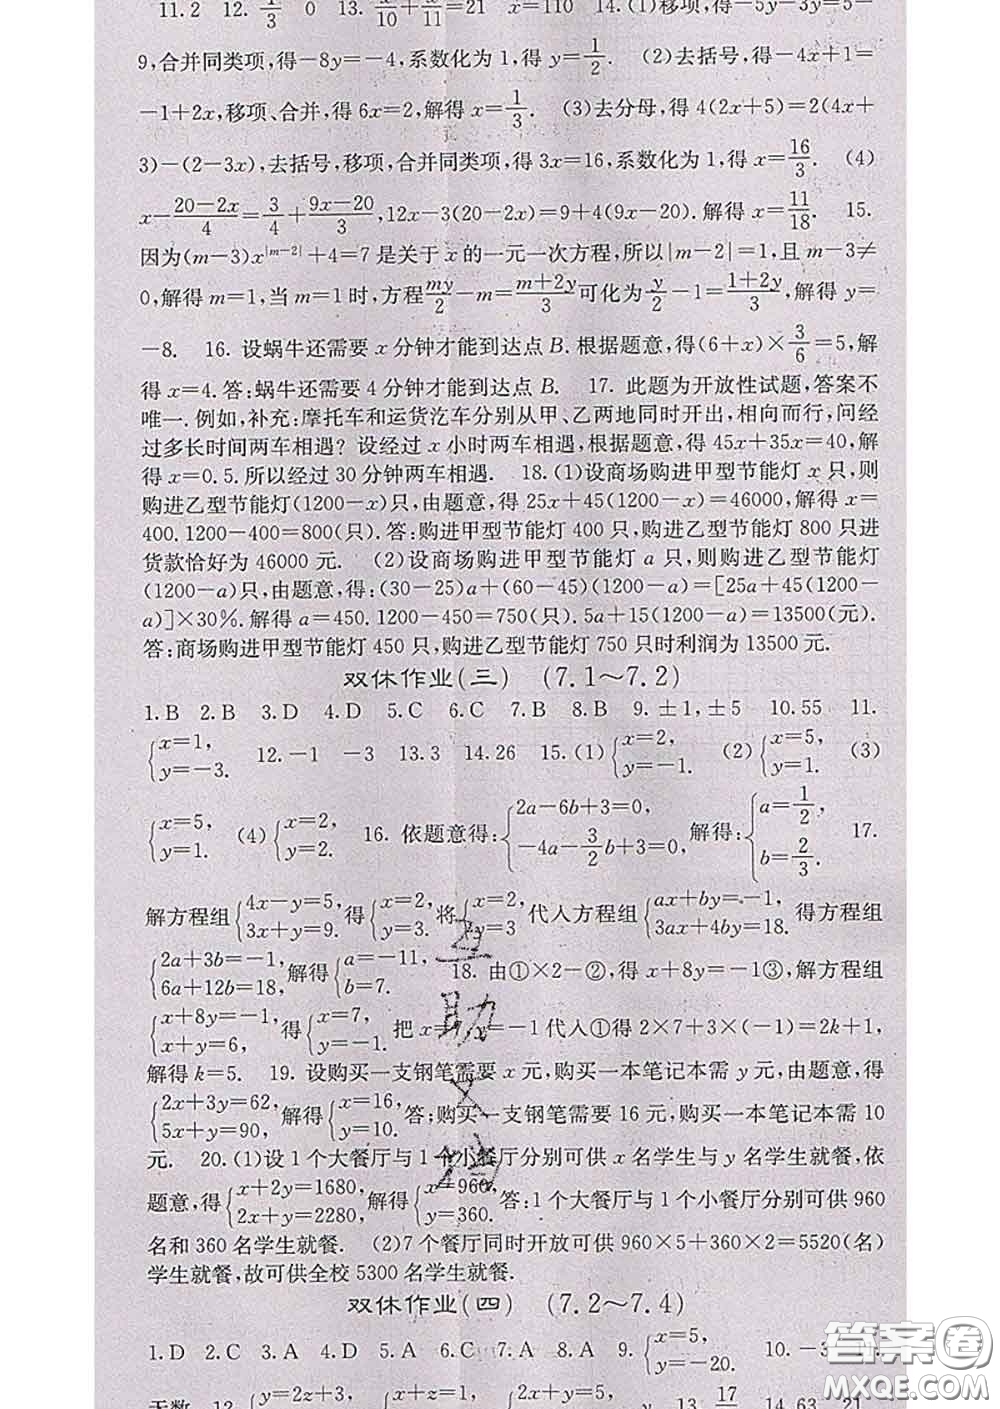 11.2  12. 1/3  0  13. x/10+x/11=21  x=110  14.(1)移项,得-5y-3y=5-
9,合并同类项,得-8y=-4,系数化为1,得y=1/2.  (2)去括号,得-4x+1=
-1+2x,移项、合并,得6x=2,解得x=1/3.  (3)去分母,得4(2x+5)=2(4x+
3)-(2-3x),去括号,移项,合并同类项,得3x=16,系数化为1,得x=16/3.  (4)
x-(20-2x)/4=3/4+(9x-20)/3,12x-3(20-2x)=9+4(9x-20).解得x=11/18.  15.
因为(m-3)x^|m-2|+4=7是关于x的一元一次方程,所以|m-2|=1,且m-3≠
0,解得m=1,当m=1时,方程my/2-m=(m+2y)/3可化为y/2-1=(1+2y)/3,解得y=
-8.  16.设蜗牛还需要x分钟才能到达点B.根据题意,得(6+x)×3/6=5,解
得x=4.答:蜗牛还需要4分钟才能到达点B.  17.此题为开放性试题,答案不
唯一.例如,补充:摩托车和运货汽车分别从甲、乙两地同时开出,相向而行,问经
过多长时间两车相遇?设经过x小时两车相遇,根据题意,得45x+35x=40,解
得x=0.5.所以经过30分钟两车相遇.  18.(1)设商场购进甲型节能灯x只,则
购进乙型节能灯(1200-x)只,由题意,得25x+45(1200-x)=46000,解得x=
400.1200-400=800(只).答:购进甲型节能灯400只,购进乙型节能灯800只进
货款恰好为46000元.  (2)设商场购进甲型节能灯a只,则购进乙型节能灯
(1200-a)只,由题意,得:(30-25)a+(60-45)(1200-a)=[25a+45(1200-
a)]×30%.解得a=450.1200-450=750(只).5a+15(1200-a)=13500(元).
答:商场购进甲型节能灯450只,购进乙型节能灯750只时利润为13500元.
双休作业(三)  (7.1~7.2)
1.B  2.B  3.D  4.D  5.C  6.C  7.B  8.B  9.±1,±5  10.55  11.
{x=1, y=-3.  12.-1  -3  13.3  14.26  15.(1){x=2, y=-1.  (2){x=5, y=1.  (3)
{x=5, y=1.  (4){x=2, y=2.  16.依题意得:{2a-6b+3=0, -4a-3/2b+3=0,解得:{a=1/2, b=2/3.  17.
解方程组{4x-y=5, 3x+y=9.得{x=2, y=3.将{x=2, y=3代入方程组{ax+by=-1, 3ax+4by=18.得方程组
{2a+3b=-1, 6a+12b=18,解得{a=-11, b=7.  18.由①×2-②,得x+8y=-1③,解方程组
{x+8y=-1, x+y=6,得{x=7, y=-1.把x=7,y=-1代入①得2×7+3×(-1)=2k+1,
解得k=5.  19.设购买一支钢笔需要x元,购买一本笔记本需y元,由题意,得
{2x+3y=62, 5x+y=90,解得{x=16, y=10.答:购买一支钢笔需要16元,购买一本笔记本需10
元.  20.(1)设1个大餐厅与1个小餐厅分别可供x名学生与y名学生就餐,依
题意,得{x+2y=1680, 2x+y=2280,解得{x=960, y=360.答:1个大餐厅与1个小餐厅分别可供960
名和360名学生就餐.  (2)7个餐厅同时开放可供960×5+360×2=5520(名)
学生就餐,故可供全校5300名学生就餐.
双休作业(四)  (7.2~7.4)
1.D  2.C  3.A  4.D  5.A  6.C  7.A  8.A  9.{x=5, y=-20.  10.-3
无数  12. {y=2z+3,  {x+z=1,  {2x+5y=  13. 17  14.63  21
互助文塘
答案圈
MXQE.COM